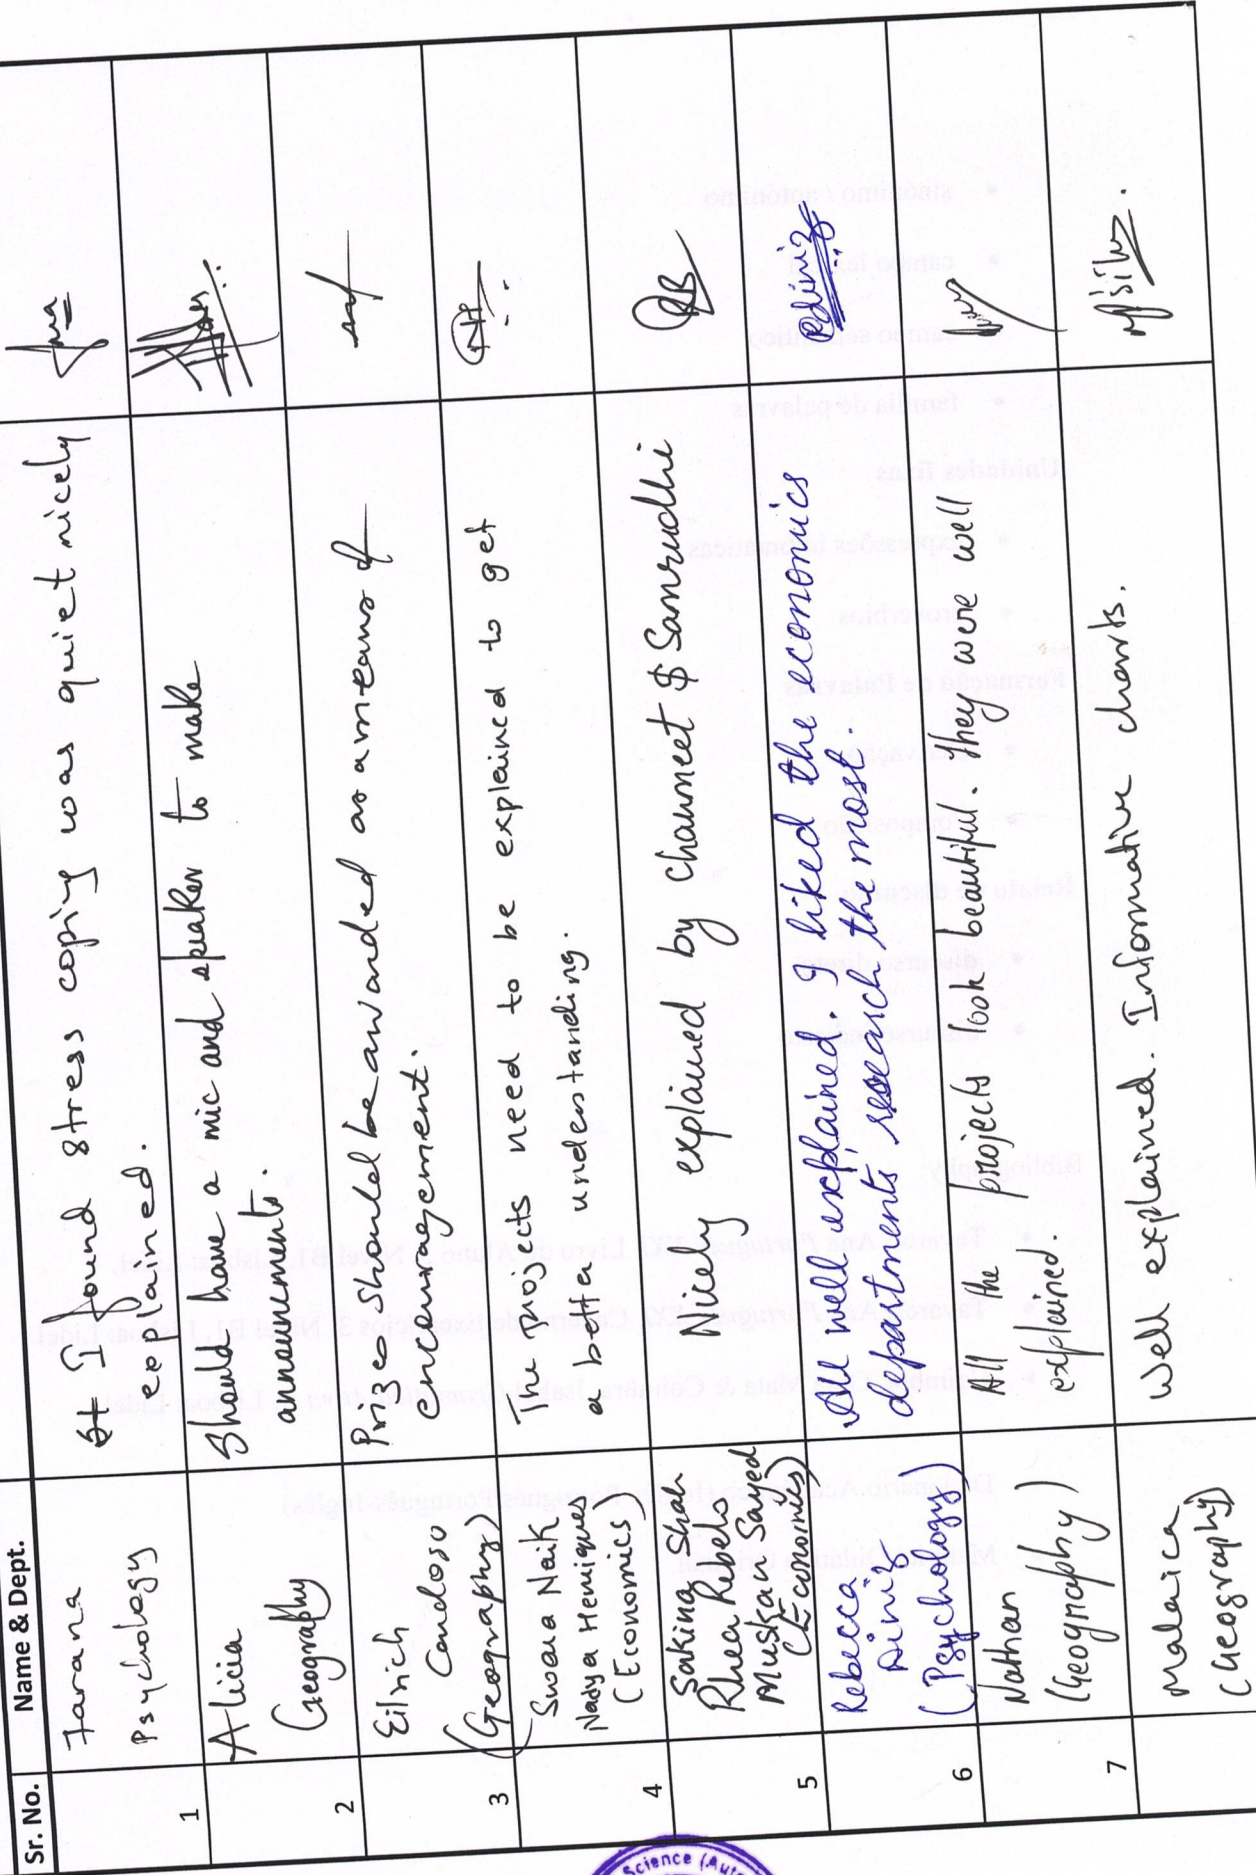 Sr. No.
Name & Dept.
Farana
Psychology
I found stress coping was quiet nicely
explained.
1
Alicia
Geography
Should have a mic and speaker to make
announcements.
2
Eilrich
Cardoso
(Geography)
Prizes should be awarded as a means of
encouragement.
3
Swara Naik
Nadya Henriques
(Economics)
The projects need to be explained to get
a better understanding.
4
Sakina Shah
Rhea Rebelo
Muskan Sayed
(Economics)
Nicely explained by Charmeet & Samrudhi
5
Rebecca
Diniz
(Psychology)
All well explained. I liked the economics
departments research the most.
6
Nathan
(Geography
All the projects look beautiful. They were well
explained.
7
Malaica
(Geography)
Well explained. Informative charts.
Science (Auto